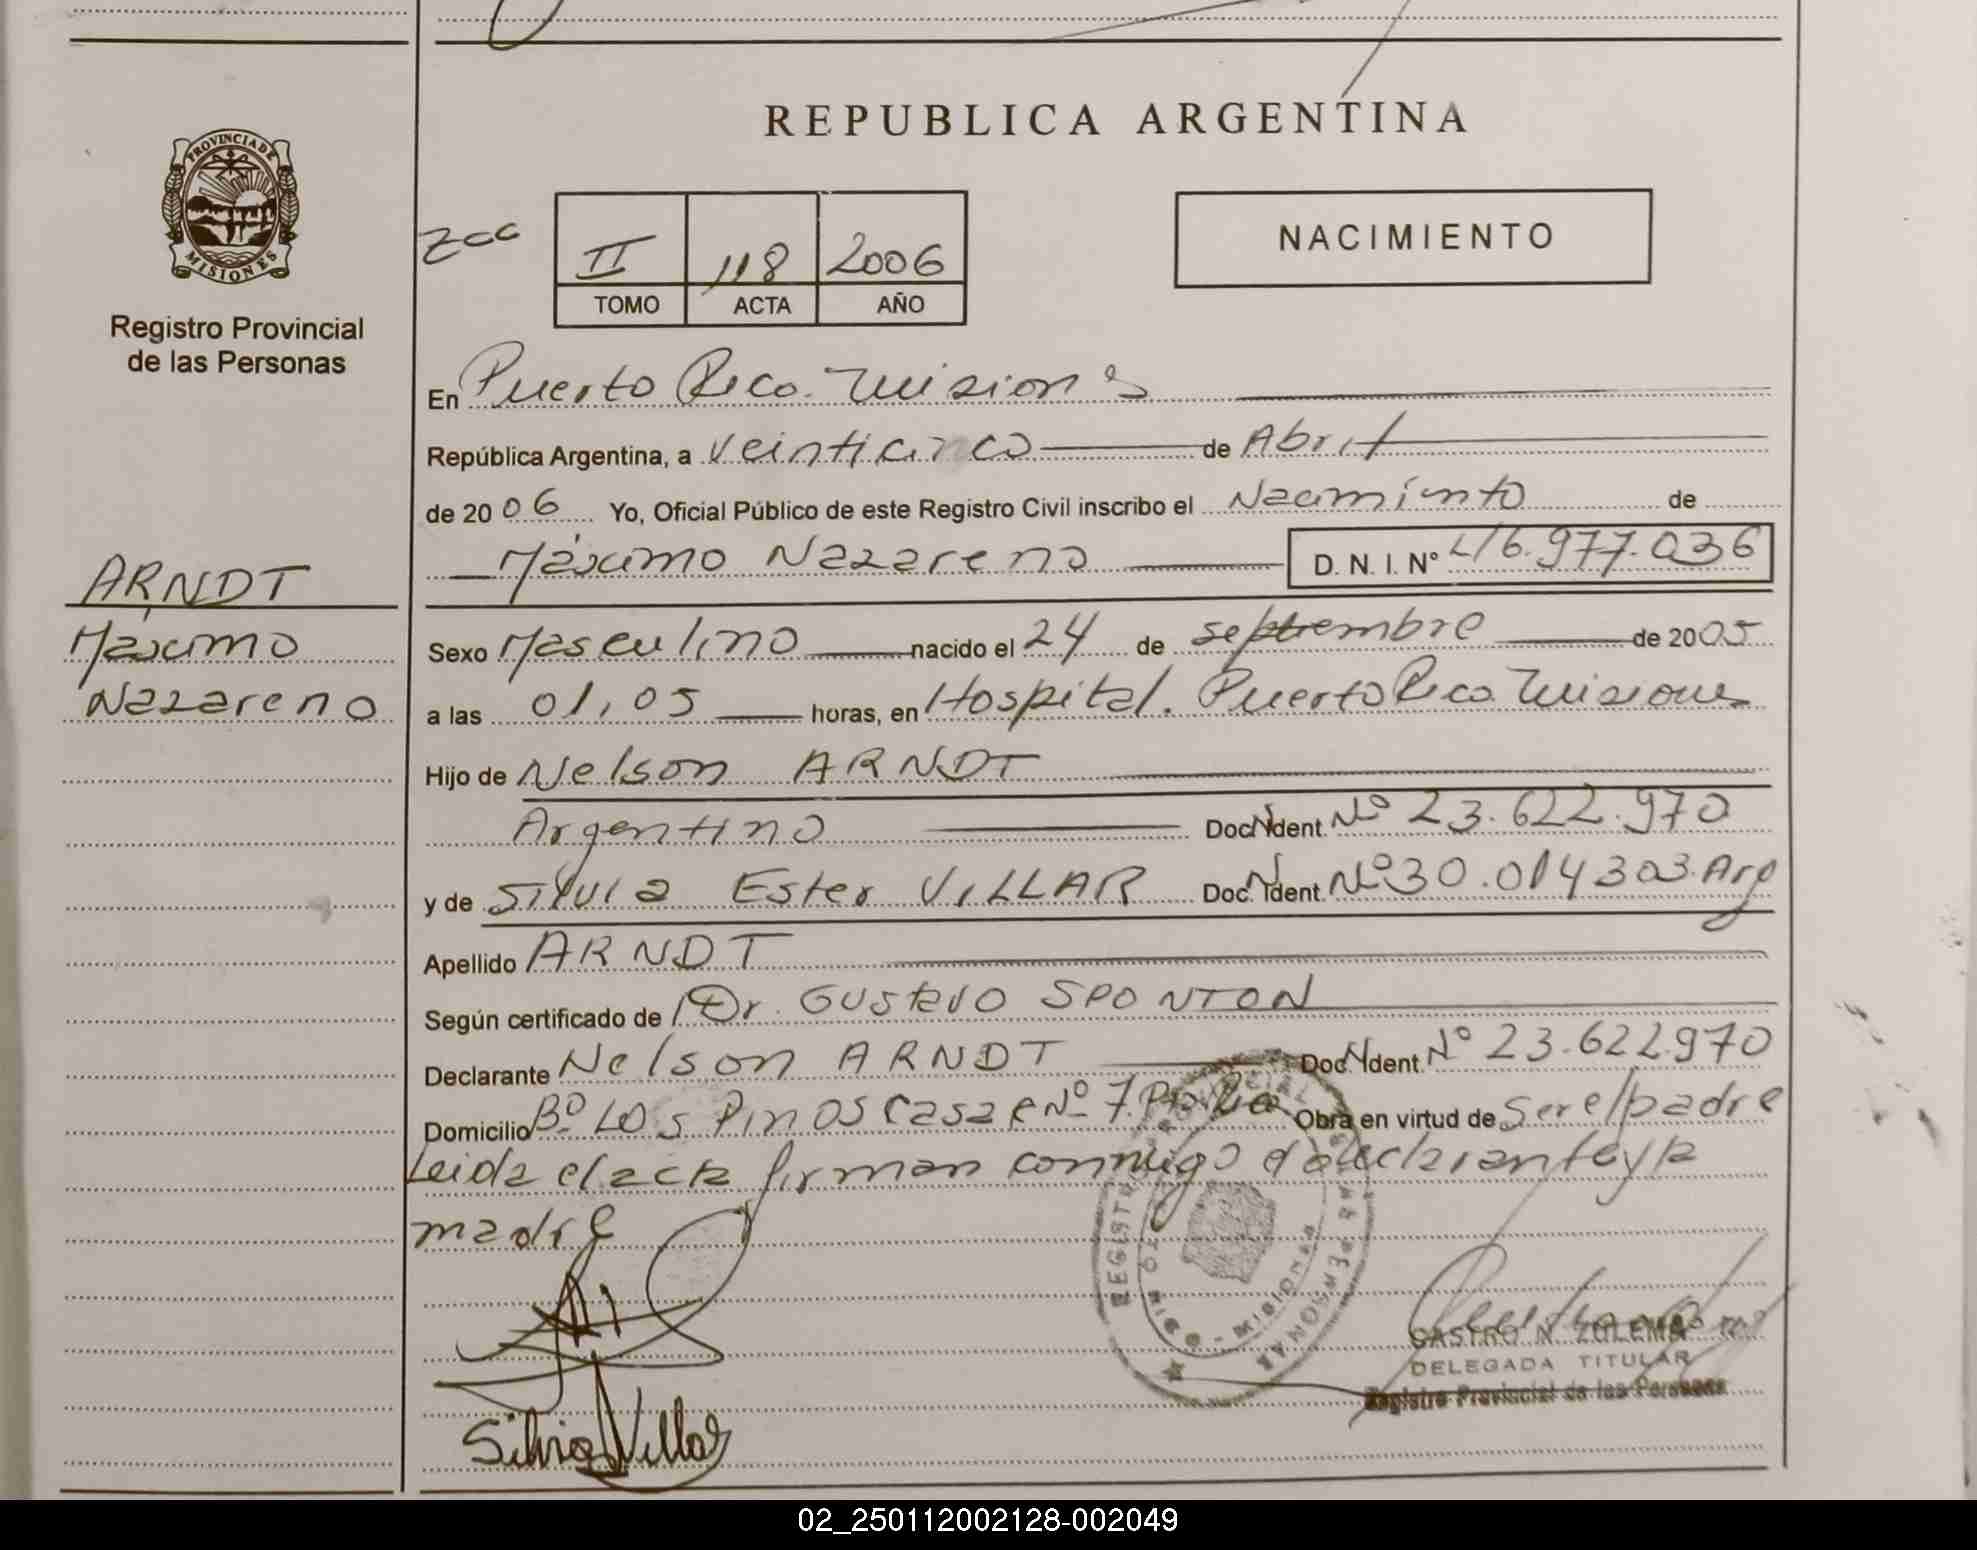 REPUBLICA ARGENTINA
PROVINCIA DE
MISIONES
Registro Provincial
de las Personas
zcc
II 118 2006
TOMO ACTA AÑO
NACIMIENTO
En Puerto Rico. Misiones
República Argentina, a veinticinco de Abril
de 2006 Yo, Oficial Público de este Registro Civil inscribo el Nacimiento de
Máximo Nazareno D. N. I. Nº 46.977.036
ARNDT
Máximo
Nazareno
Sexo Masculino nacido el 24 de septiembre de 2005
a las 01,05 horas, en Hospital. Puerto Rico. Misiones
Hijo de Nelson ARNDT
Argentino Doc. Ident. Nº 23.622.970
y de Silvia Ester VILLAR Doc. Ident. Nº 30.014303. Arg
Apellido ARNDT
Según certificado de Dr. Gustavo SPONTON
Declarante Nelson ARNDT Doc. Ident. Nº 23.622.970
Domicilio Bº Los Pinos Casa Nº 7. Obra en virtud de Ser el padre
Leida el acta firman conmigo el declarante y la
madre
Silvia Villar
REGISTRO PROVINCIAL DE LAS PERSONAS
MISIONES
CASTRO N. ZULEMA
DELEGADA TITULAR
Registro Provincial de las Personas
02_250112002128-002049